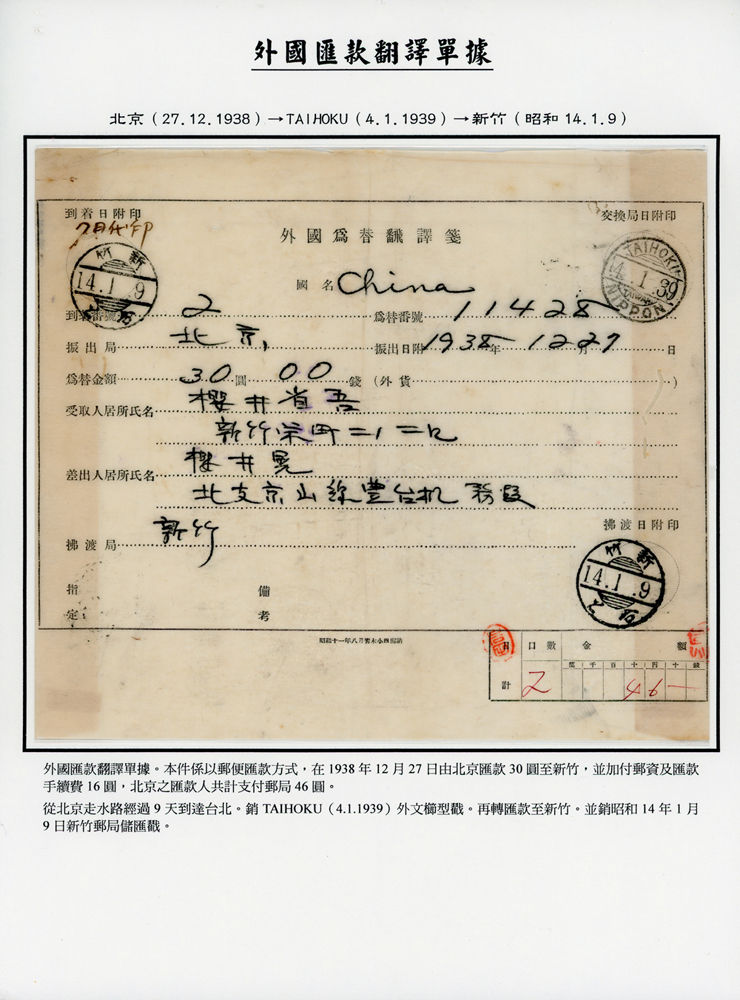 外國匯款翻譯單據
北京（27.12.1938）→TAIHOKU（4.1.1939）→新竹（昭和14.1.9）
到着日附印
交換局日附印
外國爲替飜譯箋
新竹
14.1.9
TAIHOKU
4.1.39
NIPPON
國名 China
到着番號 2 爲替番號 11428
振出局 北京, 振出日附 1938年12月27日
爲替金額 30圓00錢（外貨 ）
受取人居所氏名 櫻井省吾
新竹栄町二ノ二
差出人居所氏名 櫻井晃
北支京山線豊台机務段
拂渡日附印
拂渡局 新竹
新竹
14.1.9
指定
備考
口數 金額
萬千百十円十錢
計 2 46—
外國匯款翻譯單據。本件係以郵便匯款方式，在 1938 年 12 月 27 日由北京匯款 30 圓至新竹，並加付郵資及匯款
手續費 16 圓，北京之匯款人共計支付郵局 46 圓。
從北京走水路經過 9 天到達台北。銷 TAIHOKU（4.1.1939）外文櫛型戳。再轉匯款至新竹。並銷昭和 14 年 1 月
9 日新竹郵局儲匯戳。